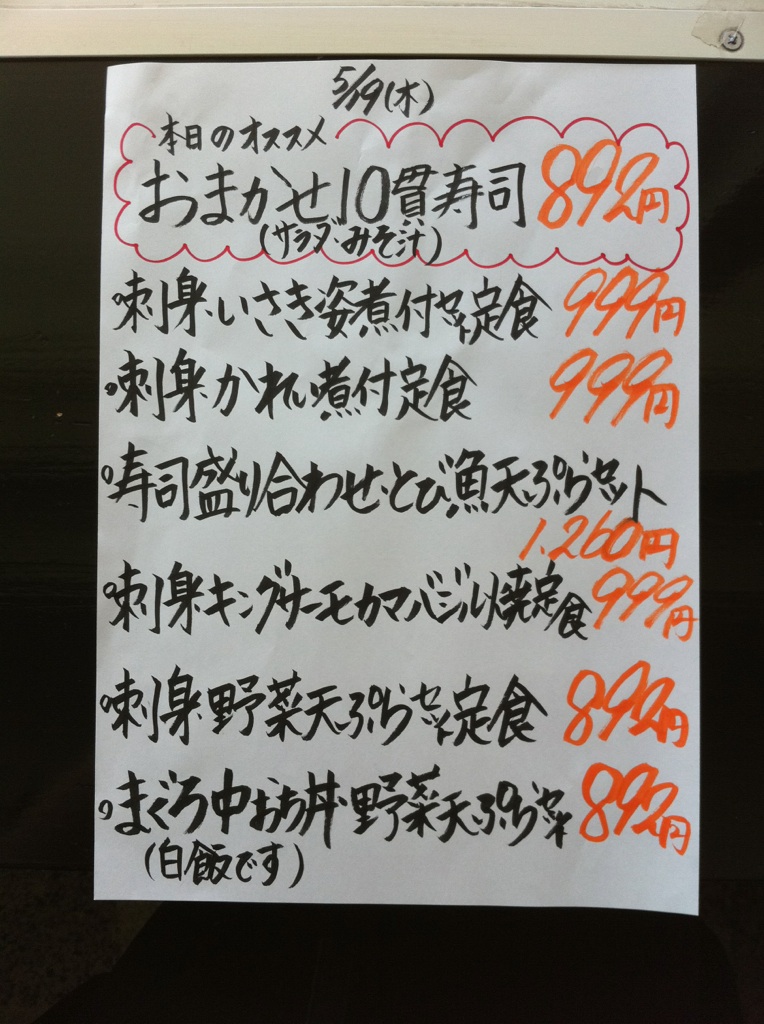 5/19(木)
本日のオススメ
おまかせ10貫寿司 892円
(サラダ・みそ汁)
刺身・いさき姿煮付セット定食 999円
刺身・かれい煮付定食 999円
寿司盛り合わせ・とび魚天ぷらセット
1.260円
刺身・キングサーモンカマバジル焼定食 999円
刺身・野菜天ぷらセット定食 892円
まぐろ中おち丼・野菜天ぷらセット 892円
(白飯です)